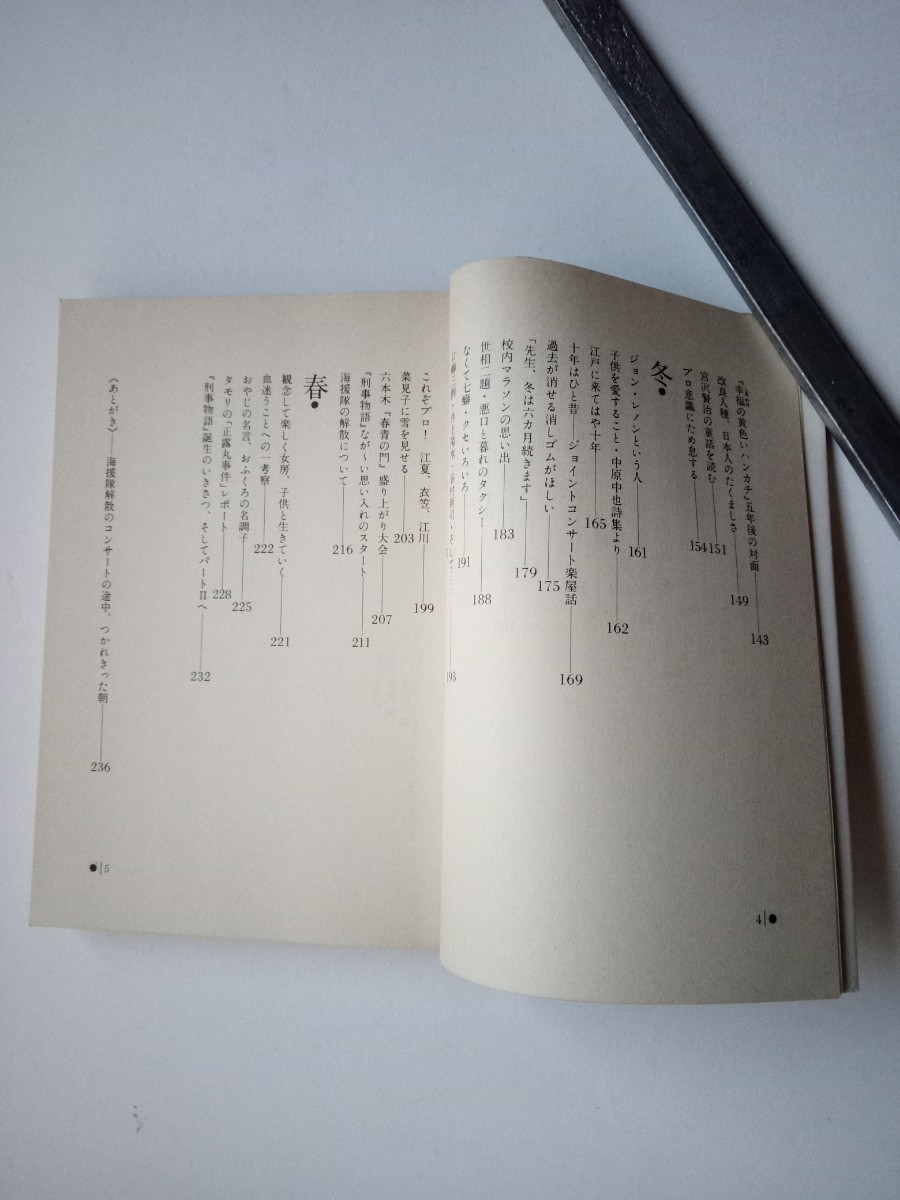 『幸福の黄色いハンカチ』五年後の対面 143
改良人種、日本人のたくましさ 149
宮沢賢治の童話を読む 151
プロ意識にため息する 154
冬●
ジョン・レノンという人 161
子供を愛すること・中原中也詩集より 162
江戸に来てはや十年 165
十年はひと昔――ジョイントコンサート楽屋話 169
過去が消せる消しゴムがほしい 175
「先生、冬は六カ月続きます」 179
校内マラソンの思い出 183
世相二題・悪口と暮れのタクシー 188
なくて七癖・クセいろいろ 191
193
4 ●
これぞプロ！ 江夏、衣笠、江川 199
菜見子に雪を見せる 203
六本木『春青の門』盛り上がり大会 207
『刑事物語』なが〜い思い入れのスタート 211
海援隊の解散について 216
春●
観念して楽しく女房、子供と生きていく 221
血迷うことへの一考察 222
おやじの名言、おふくろの名調子 225
タモリの「正露丸事件」レポート 228
『刑事物語』誕生のいきさつ、そしてパートⅡへ 232
〈あとがき〉――海援隊解散のコンサートの途中、つかれきった朝 236
● 5